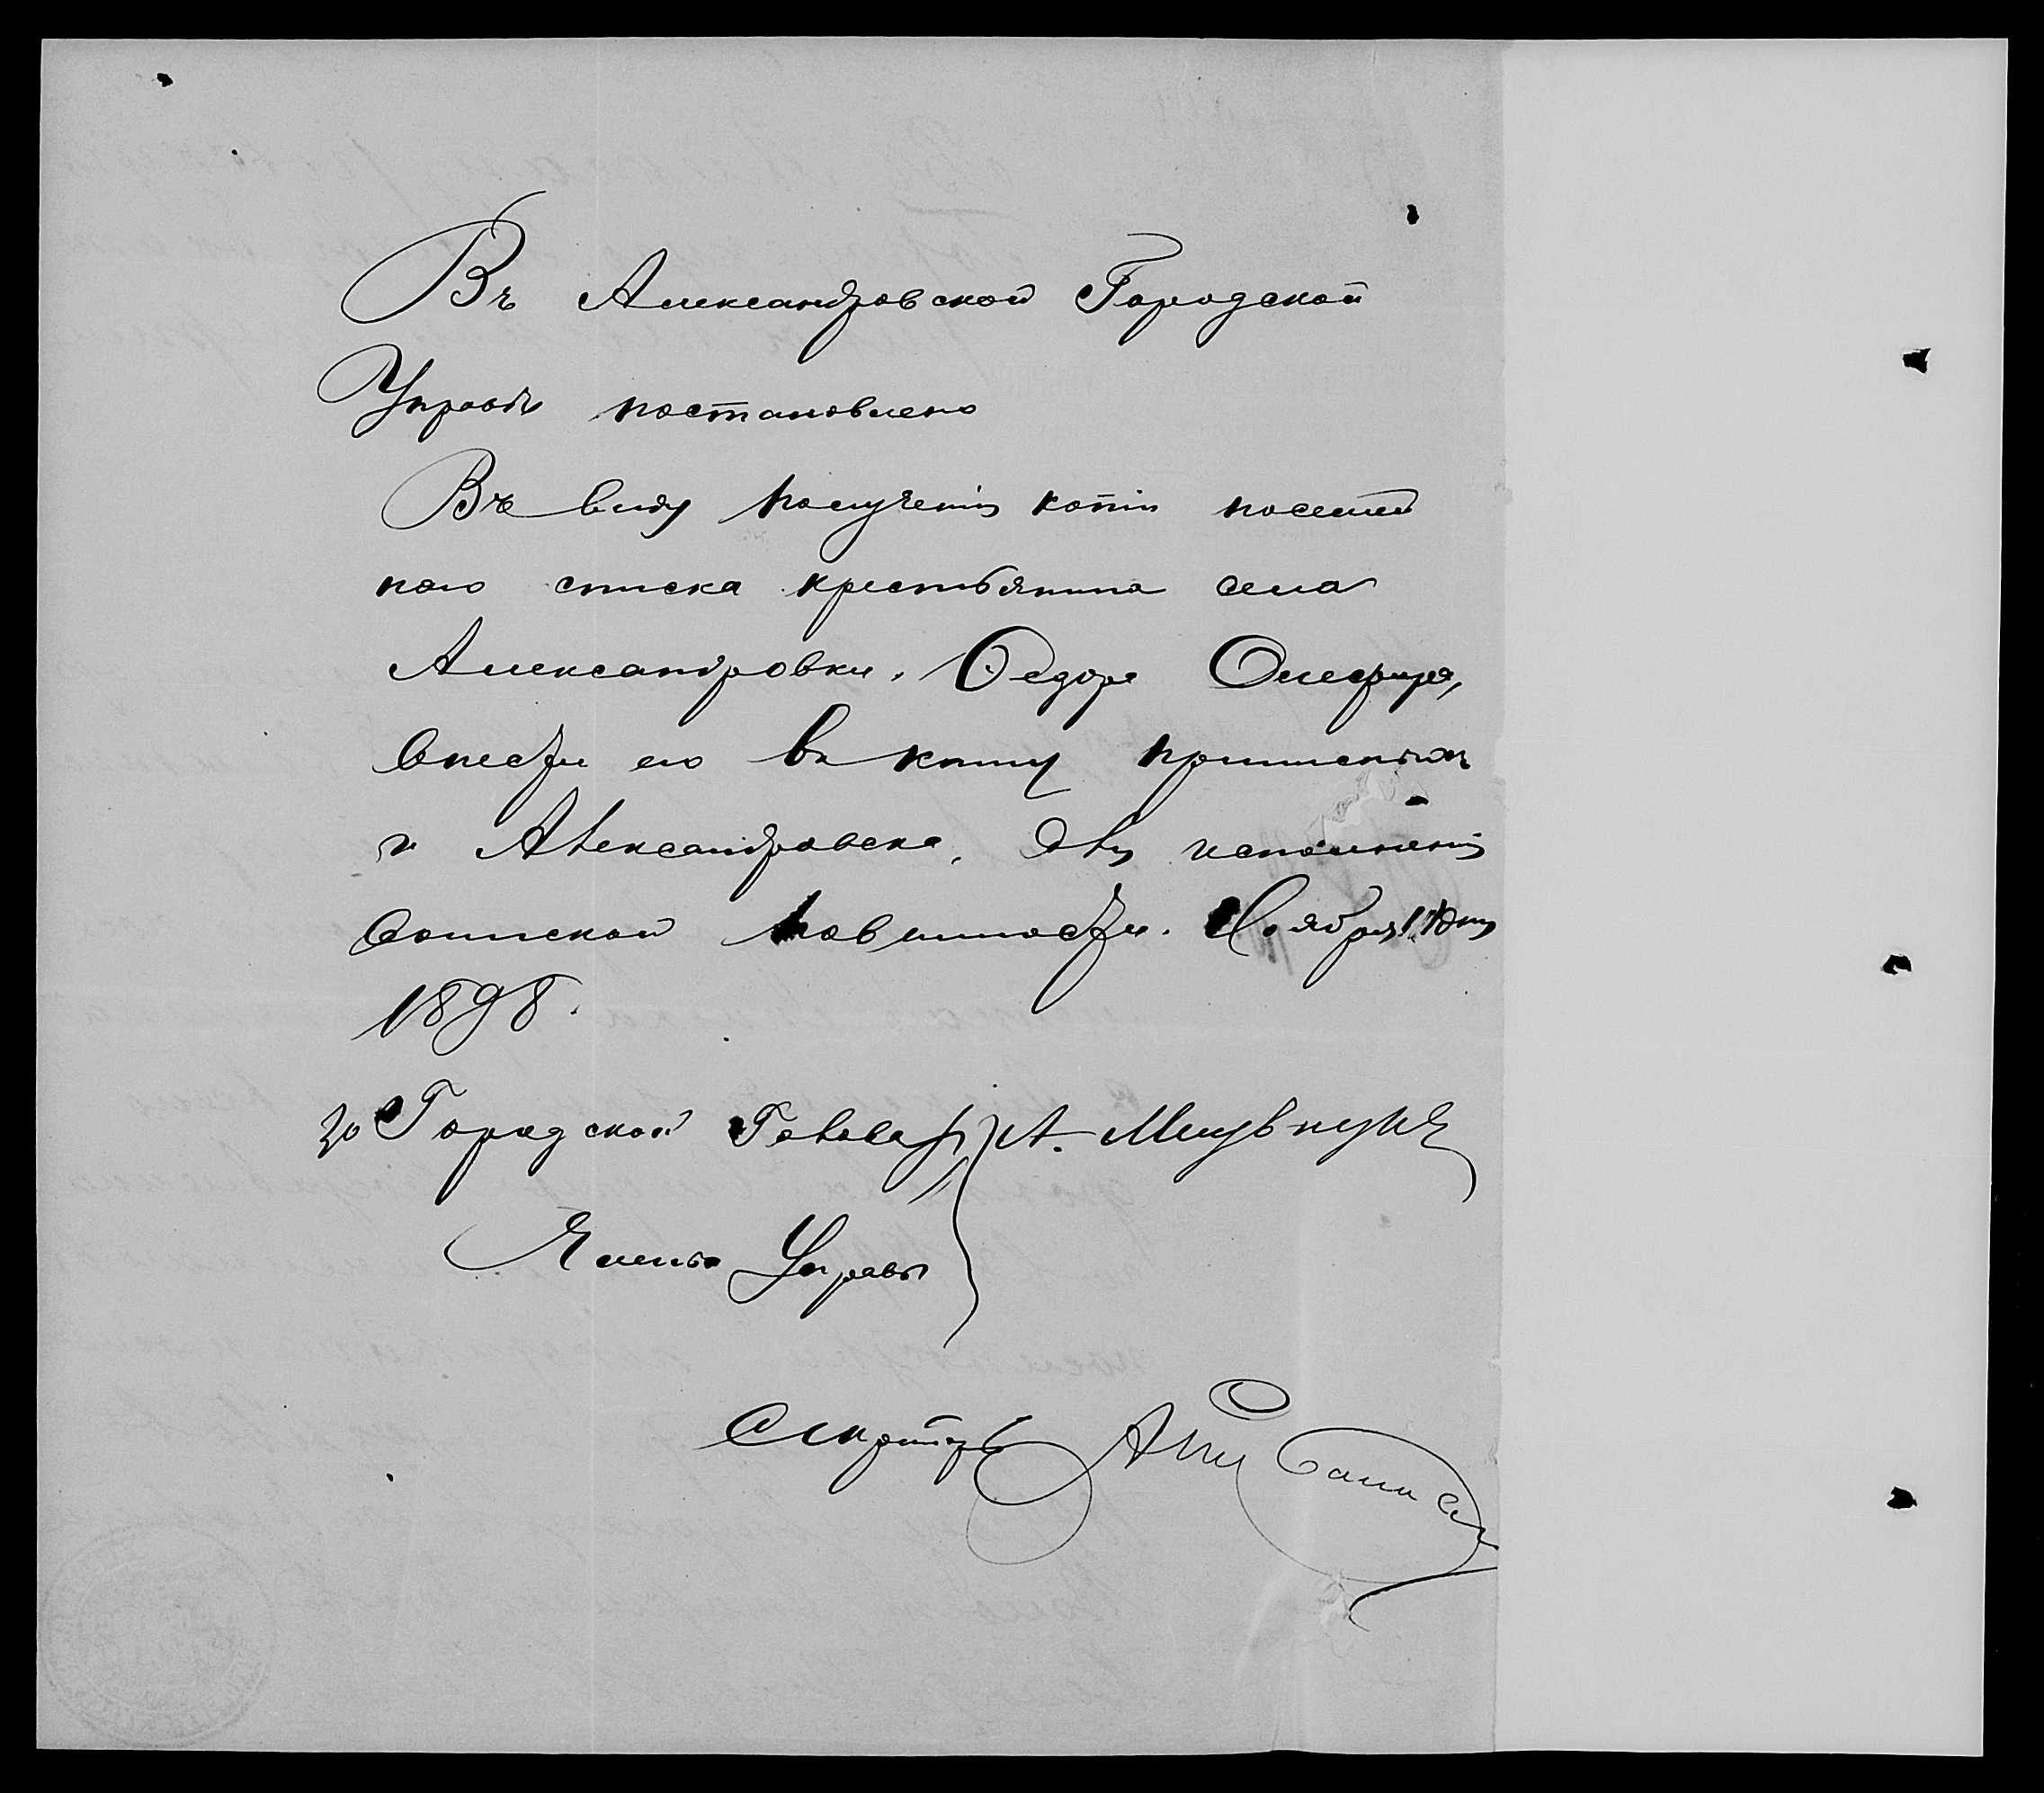 Въ Александровской Городской
Управѣ постановлено
Въ виду полученія копіи посемей
наго списка крестьянина села
Александровки, Ѳедора
внести его въ книгу приписныхъ
г. Александровска, для исполненія
воинской повинности. Ноября
1898.
За Городской Голова А.
Члены Управы
Секретарь